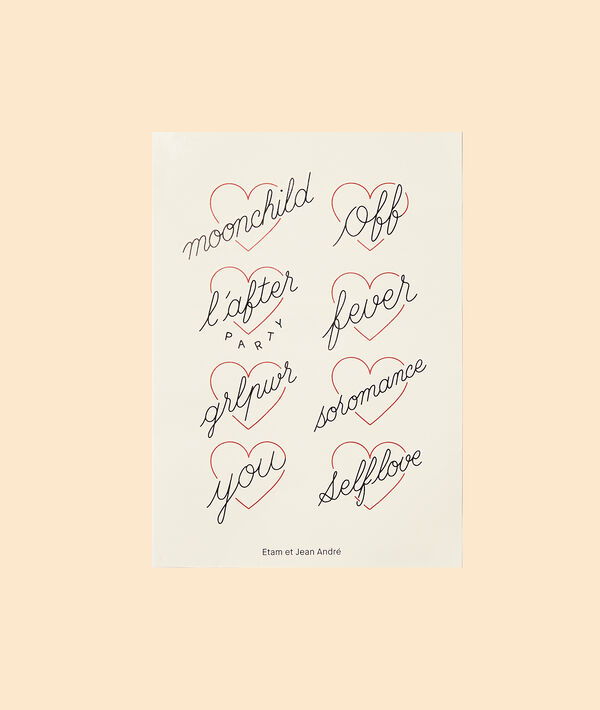 moonchild
Off
l'after
PARTY
fever
grlpwr
soromance
you
selflove
Etam et Jean André